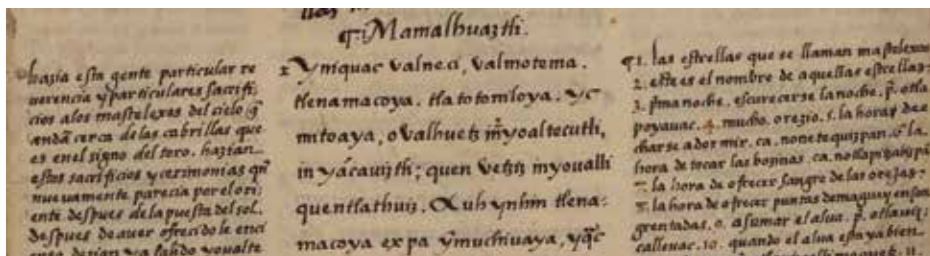 ¶i Mamalhuaztli.
hazia esta gente particular re
uerencia y particulares sacrifi;
cios alos mastelexos del cielo q̃
andã cerca de las cabrillas que
es en el signo del toro. hazian
estos sacrificios y cerimonias qñ
nueuamente parecia por el ori;
ente despues de la puesta del sol.
despues de auer ofrecido le enci
Yniquac valneci, valmotema.
tlenamacoya. tlatotoniloya. yc
mitoaya, o valhuetz in yoaltecutli,
in yacauiztli; quen vetziz in youalli
quentlathuiz. Auh ynhin tlena;
macoya expa ỹmuchiuaya, yq̃c
¶1. las estrellas que se llaman mastelexos
2. este es el nombre de aquellas estrellas.
3. pma noche, escurecerse la noche. p. otla
poyauac. 4. mucho. o rezio. s. la hora de e
charse a dormir, ca. nonetequizpan. o la
hora de tocar las bozinas. ca. notlapitzalizpã
7. la hora de ofrecer sangre de las orejas.
8. la hora de ofrecer puntas de maguey ensan
grentadas. o. asumar el alua. p. otlauiz;
calleuac. 10. quando el alua esta ya bien